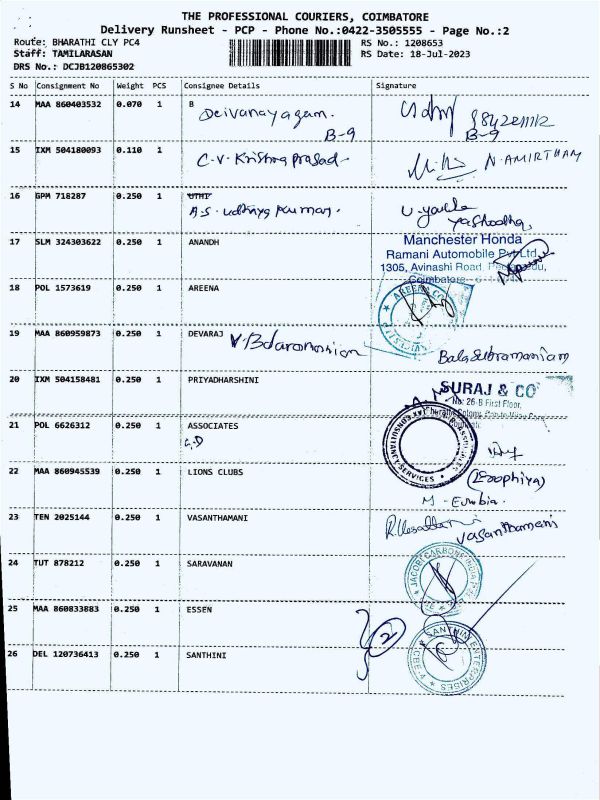 THE PROFESSIONAL COURIERS, COIMBATORE
Delivery Runsheet - PCP - Phone No.:0422-3505555 - Page No.:2
Route: BHARATHI CLY PC4 RS No.: 1208653
Staff: TAMILARASAN RS Date: 18-Jul-2023
DRS No.: DCJB120865302
S No Consignment No Weight PCS Consignee Details Signature
14 MAA 860403532 0.070 1 B
Deivanayagam.
B-9 B-9
15 IXM 504180093 0.110 1 C.V. Krishna Prasad N. AMIRTHAM
16 GPM 718287 0.250 1 UTHI
A.S. udhaya Kumar. Yashodha
17 SLM 324303622 0.250 1 ANANDH Manchester Honda
Ramani Automobile Pvt Ltd.
1305, Avinashi Road,
Coimbatore
18 POL 1573619 0.250 1 AREENA AREENA CO
19 MAA 860959873 0.250 1 DEVARAJ
Balasubramaniam
20 IXM 504158481 0.250 1 PRIYADHARSHINI SURAJ & CO
No: 26-B First Floor,
21 POL 6626312 0.250 1 ASSOCIATES TAX CONSULTANCY SERVICES
22 MAA 860945539 0.250 1 LIONS CLUBS
23 TEN 2025144 0.250 1 VASANTHAMANI Vasanthamani
24 TUT 878212 0.250 1 SARAVANAN JACOBI CARBONS INDIA
25 MAA 860833883 0.250 1 ESSEN
2
26 DEL 120736413 0.250 1 SANTHINI SANTHINI ENTERPRISES CBE